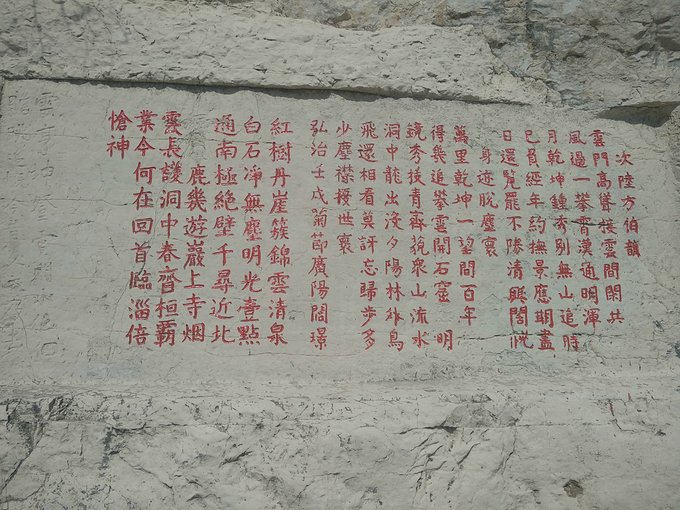 次陸方伯韻
雲門高聳接雲間閑共
風過一攀霄漢通明渾
月乾坤鍾秀别無山追時
已負經年約撫景應期盡
日還覽罷不勝清興闊恍
身迹脱塵寰
萬里乾坤一望間百年
得幾追攀雲開石窟明
鏡秀挾青齊藐衆山流水
洞中龍出没夕陽林外鳥
飛還相看莫訝忘歸步多
少塵襟擾世寰
弘治壬戌菊節廣陽閻璟
紅樹丹崖簇錦雲清泉
白石凈無塵明光壹點
通南極絶壁千尋近北
鹿幾遊巖上寺烟
霞長護洞中春齊桓霸
業今何在回首臨淄倍
愴神